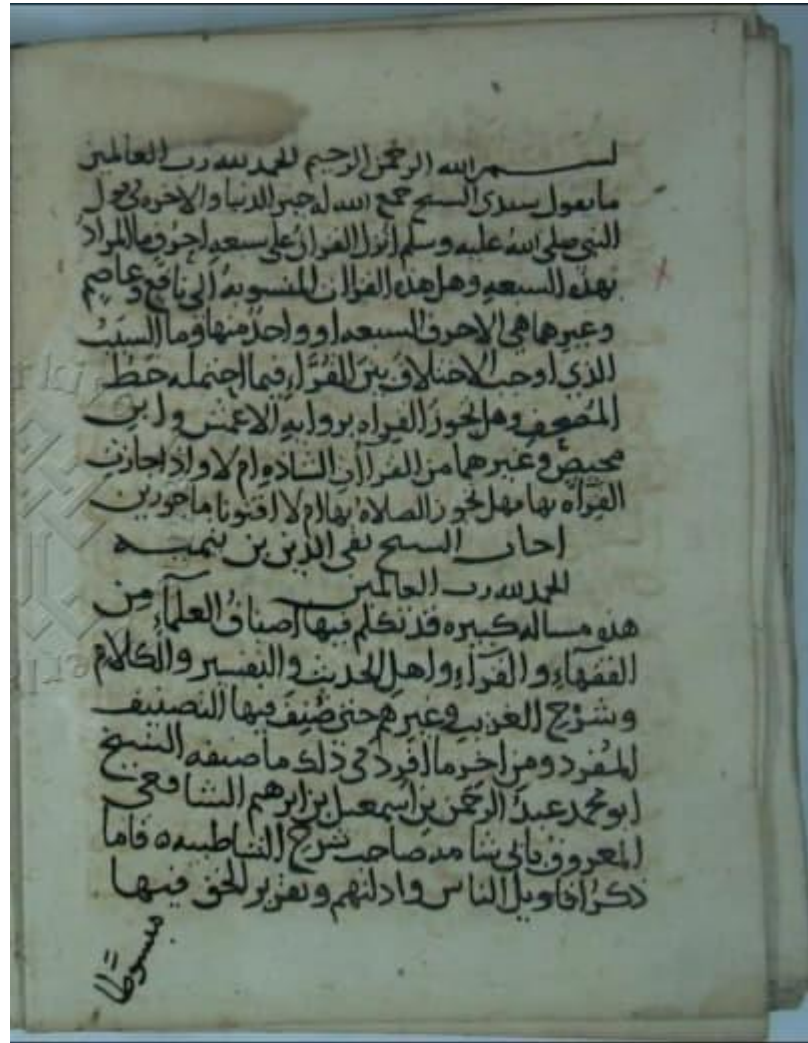 بسم الله الرحمن الرحيم الحمد لله رب العالمين
ما يقول سيدي الشيخ جمع الله له خير الدنيا والاخره في قول
النبي صلى الله عليه وسلم انزل القران على سبعه احرف ما المراد
بهذه السبعه وهل هذه القراات المنسوبه الى نافع وعاصم
وغيرهما هي الاحرف السبعه او واحد منها وما السبب
الذي اوجب الاختلاف بين القراء فيما احتمله خط
المصحف وهل تجوز القراه بروايه الاعمش وابن
محيصن وغيرهما من القراات الشاذه ام لا واذا جازت
القراه بها فهل تجوز الصلاه بها ام لا افتونا ماجورين
اجاب الشيخ تقي الدين بن تيميه
الحمد لله رب العالمين
هذه مساله كبيره قد تكلم فيها اصناف العلماء من
الفقهاء والقراء واهل الحديث والتفسير والكلام
وشرح الغريب وغيرهم حتى صنف فيها التصنيف
المفرد ومن اخر ما افرد في ذلك ما صنفه الشيخ
ابو محمد عبد الرحمن بن اسمعيل بن ابرهيم الشافعي
المعروف بابي شامه صاحب شرح الشاطبيه ه فاما
ذكر اقاويل الناس وادلتهم وتقرير الحق فيها
مبسوطا